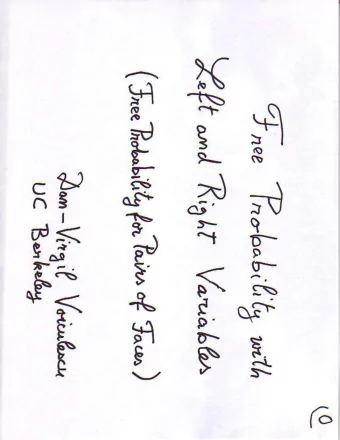 Free Probability with
Left and Right Variables
(Free Probability for Pairs of Faces)
Dan-Virgil Voiculescu
UC Berkeley